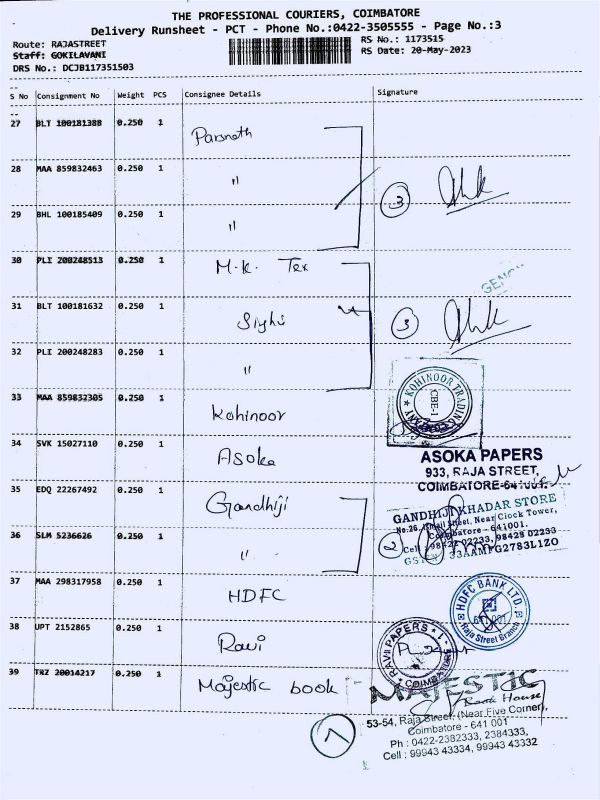 THE PROFESSIONAL COURIERS, COIMBATORE
Delivery Runsheet - PCT - Phone No.:0422-3505555 - Page No.:3
Route: RAJASTREET
RS No.: 1173515
Staff: GOKILAVANI
RS Date: 20-May-2023
DRS No.: DCJB117351503
S No Consignment No Weight PCS Consignee Details Signature
27 BLT 100181388 0.250 1 Parsnath
28 MAA 859832463 0.250 1 "
3
29 BHL 100185409 0.250 1 "
30 PLI 200248513 0.250 1 M.K. Tex
31 BLT 100181632 0.250 1
3
32 PLI 200248283 0.250 1 "
33 MAA 859832305 0.250 1 Kohinoor
KOHINOOR TRADING COMPANY
CBE-1
34 SVK 15027110 0.250 1 Asoka
ASOKA PAPERS
933, RAJA STREET,
COIMBATORE-641001.
35 EDQ 22267492 0.250 1 Gandhiji
GANDHIJI KHADAR STORE
Street, Near Clock Tower,
Coimbatore - 641001.
36 SLM 5236626 0.250 1 "
2
Cell : 98422 02233, 98428 02233
33AAMFG2783L1ZO
37 MAA 298317958 0.250 1 HDFC
HDFC BANK LTD.
641 001
Raja Street Branch
38 UPT 2152865 0.250 1 Ravi
RAVI PAPERS
COIMBATORE - 1
39 TNZ 20014217 0.250 1 Majestic book
MAJESTIC
Book House
53-54, Raja Street, (Near Five Corner),
Coimbatore - 641 001
Ph : 0422-2382333, 2384333,
Cell : 99943 43334, 99943 43332